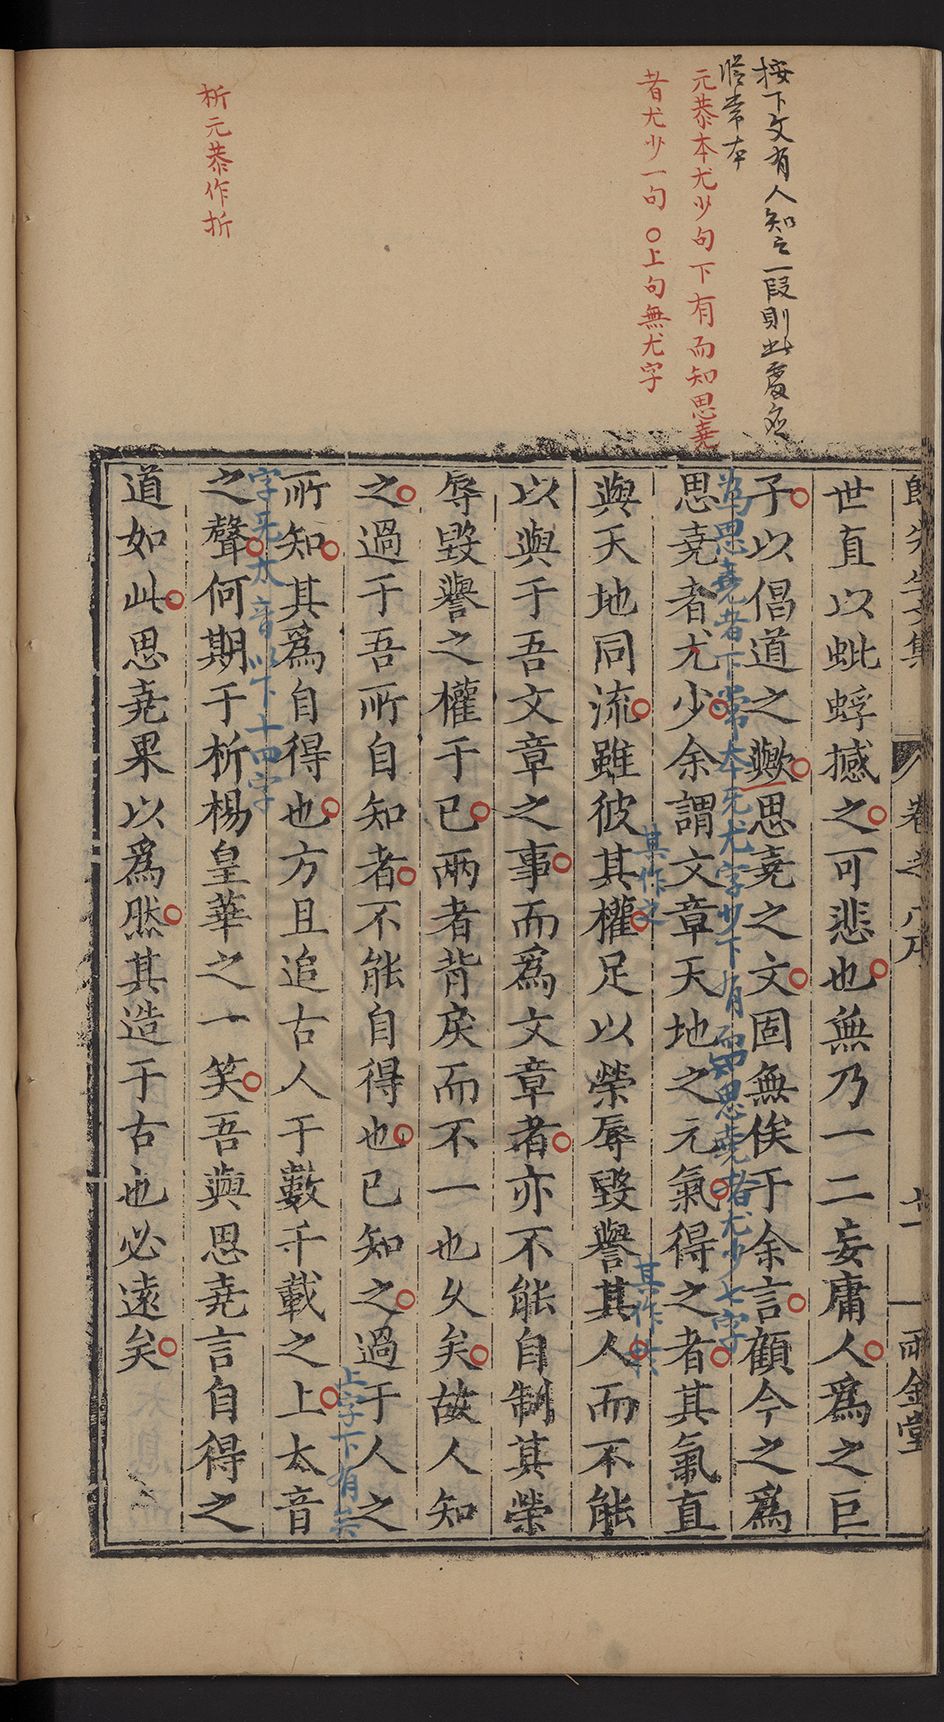 按下文有人知之一段則此處應
從常本
元恭本尤少句下有而知思堯
者尤少一句〇上句無尤字
析元恭作折
歸先生文集
卷之八序
兩金堂
世直以蚍蜉撼之可悲也無乃一二妄庸人爲之巨
子以倡道之歟思堯之文固無俟于余言顧今之爲
爲思堯者下常本无尤字少下有而知思堯者尤少七字
思堯者尤少余謂文章天地之元氣得之者其氣直
與天地同流雖彼其權足以榮辱毀譽其人而不能
其作之
其作
以與于吾文章之事而爲文章者亦不能自制其榮
辱毀譽之權于已兩者背戾而不一也久矣故人知
之過于吾所自知者不能自得也已知之過于人之
上字下有
所知其爲自得也方且追古人于數千載之上太音
字无太音以下十四字
之聲何期于析楊皇華之一笑吾與思堯言自得之
道如此思堯果以爲然其造于古也必遠矣